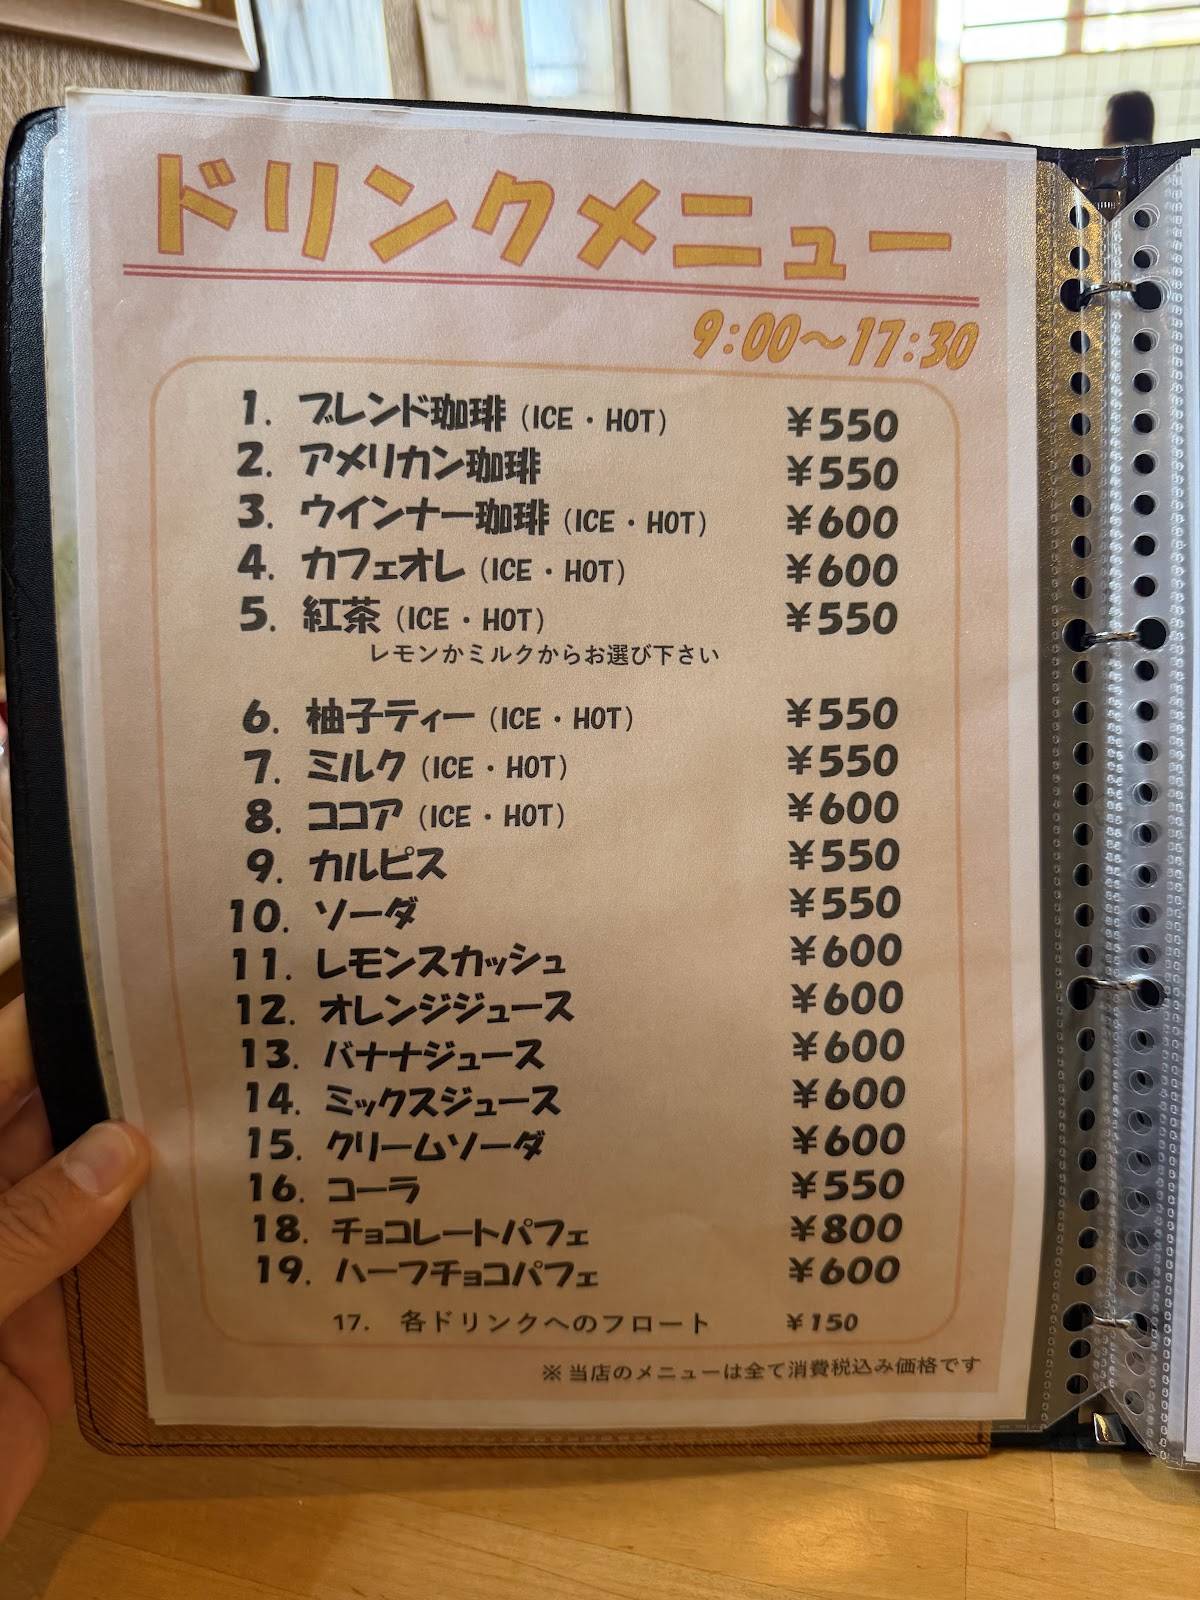 ドリンクメニュー
9:00～17:30
1. ブレンド珈琲 (ICE・HOT) ¥550
2. アメリカン珈琲 ¥550
3. ウインナー珈琲 (ICE・HOT) ¥600
4. カフェオレ (ICE・HOT) ¥600
5. 紅茶 (ICE・HOT) ¥550
レモンかミルクからお選び下さい
6. 柚子ティー (ICE・HOT) ¥550
7. ミルク (ICE・HOT) ¥550
8. ココア (ICE・HOT) ¥600
9. カルピス ¥550
10. ソーダ ¥550
11. レモンスカッシュ ¥600
12. オレンジジュース ¥600
13. バナナジュース ¥600
14. ミックスジュース ¥600
15. クリームソーダ ¥600
16. コーラ ¥550
18. チョコレートパフェ ¥800
19. ハーフチョコパフェ ¥600
17. 各ドリンクへのフロート ¥150
※当店のメニューは全て消費税込み価格です